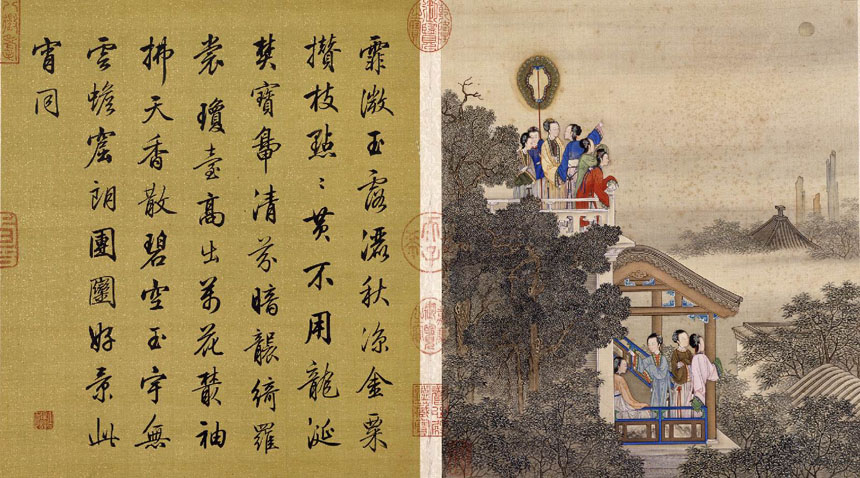 霏微玉露灑秋涼金粟
攢枝點〻黃不用龍涎
焚寶鼎清芬暗襲綺羅
裳 瓊臺高出萬花叢袖
拂天香散碧空玉宇無
雲蟾窟朗團圞好景此
宵同